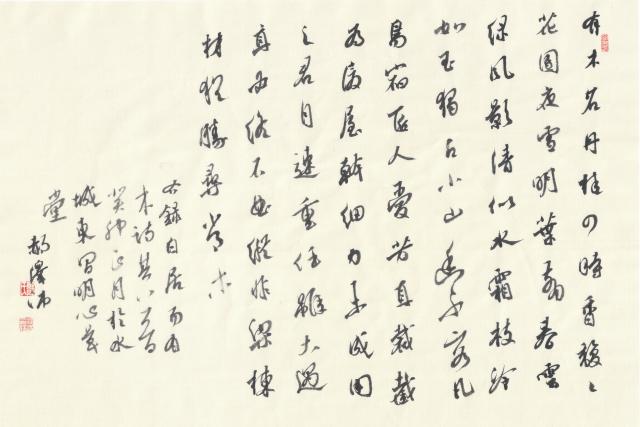 有木名丹桂四時香馥々
花團夜雪明葉翦春雲
綠風影清似水霜枝冷
如玉獨占小山幽不容凡
鳥宿匠人愛芳直裁截
為廈屋幹細力未成用
之君自速重任雖大過
直終不曲縱非梁棟
材猶勝尋常木
右錄白居易有
木詩其八首
癸卯正月於水
城東明心
堂